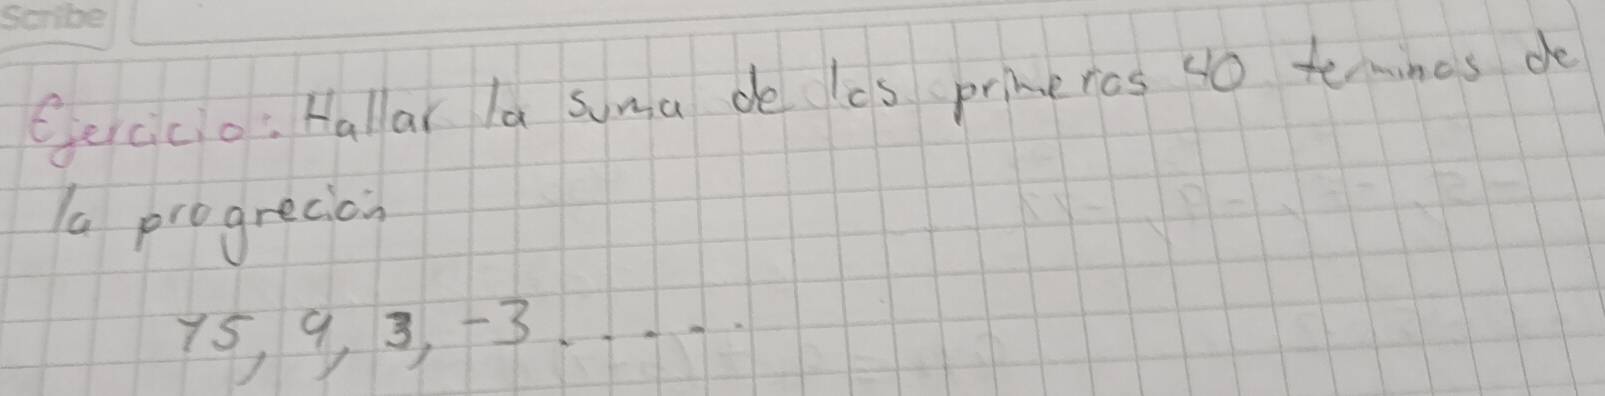 Scribe
Ejercicio: Hallar la suma de los primeros 40 terminos de
la progreción
15, 9, 3, -3.....